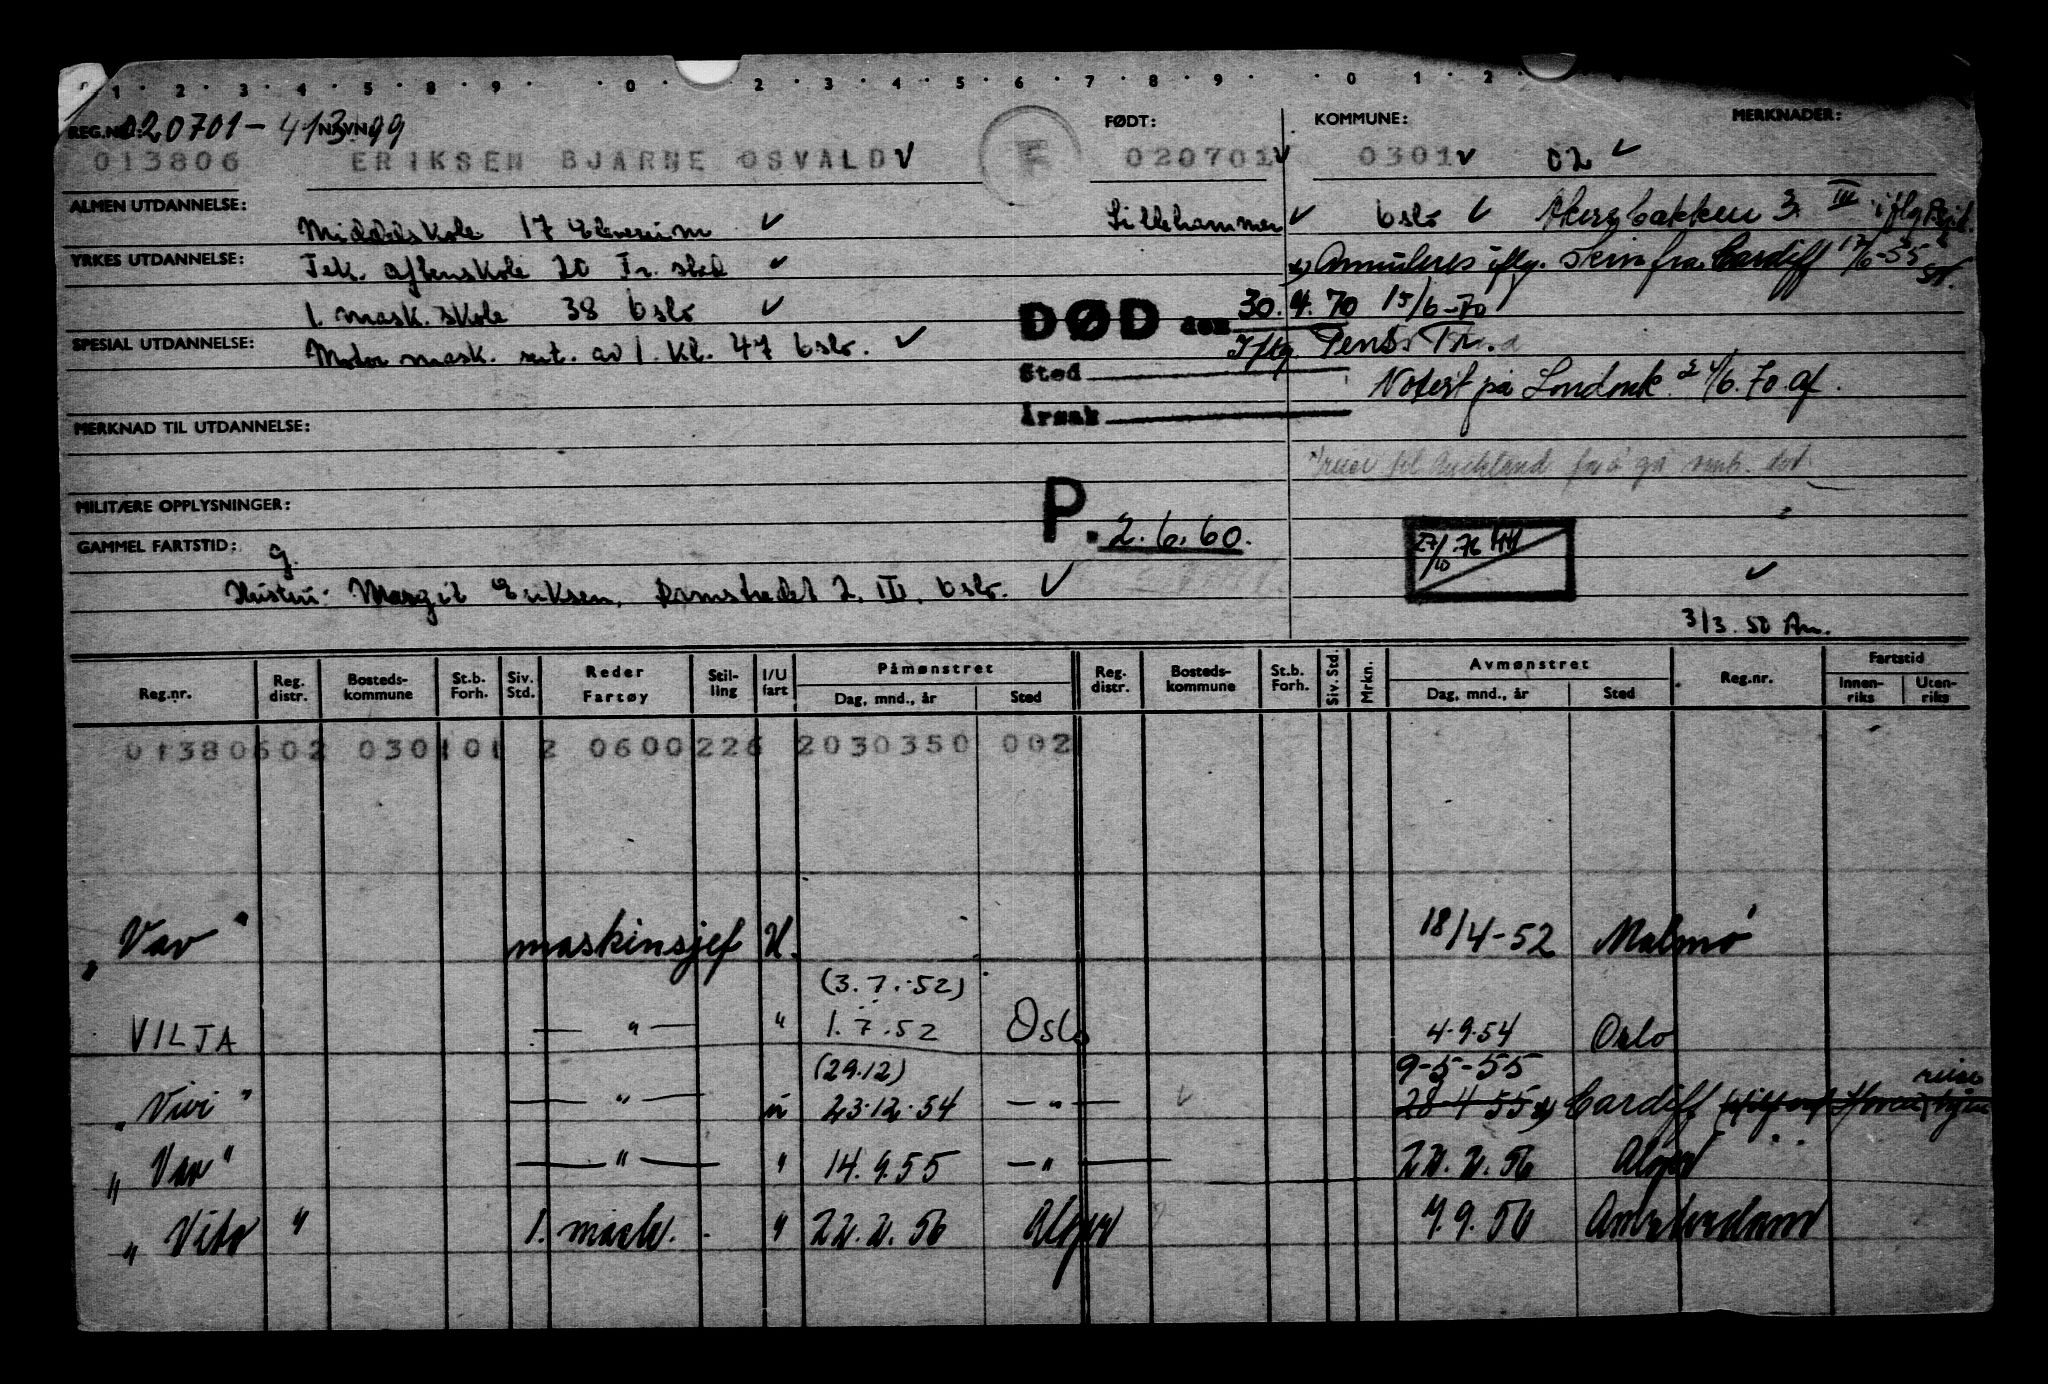 1 · 2 · 3 · 4 · 5 · 8 · 9 · · 0 · 2 · 3 · 4 · 5 · 6 · 7 · 8 · 9 · · 0 · 1 · 2 ·
REG.NR.: 020701-41399 NAVN: FØDT: KOMMUNE: MERKNADER:
013806 ERIKSEN BJARNE OSVALD ✓ F 020701 ✓ 0301 ✓ 02 ✓
ALMEN UTDANNELSE: Middelskole 17 Elverum ✓ Lillehammer ✓ Oslo ✓ Akersbakken 3 III iflg
YRKES UTDANNELSE: Tek. aftenskole 20 Tr. ✓ x) Annuleres iflg. fra Cardiff 17/6-55
1. mask. skole 38 Oslo ✓ DØD den 30.4.70 15/6-70
SPESIAL UTDANNELSE: Motor mask. sert. av 1. kl. 47 Oslo. ✓ Iflg. Pens. Tr.
Sted
Notert på 2/6.70
Årsak
MERKNAD TIL UTDANNELSE:
reise til Auckland for å gå omb. der
MILITÆRE OPPLYSNINGER:
P. 2.6.60.
GAMMEL FARTSTID: g. 27/10-76
Hustru: Margit Eriksen, Damstredet 2, III, Oslo. ✓ ✓
3/3.50 An.
Reg.nr. Reg. distr. Bosteds-kommune St.b. Forh. Siv. Std. Reder Fartøy Stil-ling I/U fart Påmønstret Dag, mnd., år Sted Reg. distr. Bosteds-kommune St.b. Forh. Siv. Std. Mrkn. Avmønstret Dag, mnd., år Sted Reg.nr. Fartstid Innen-riks Uten-riks
01380602 030101 2 0600226 2030350 002
"Var" maskinsjef U. 18/4-52 Malmø
(3.7.52)
VILJA — " — " 1.7.52 Oslo 4.9.54 Oslo
(29.12) 9-5-55
"Vivi" — " — u 23.12.54 — " — 28-4-55 x) Cardiff reise
"Var" — " — " 14.9.55 — " — 22.2.56 Alger
"Vito" 1. mask. " 22.2.56 Alger 7.9.56